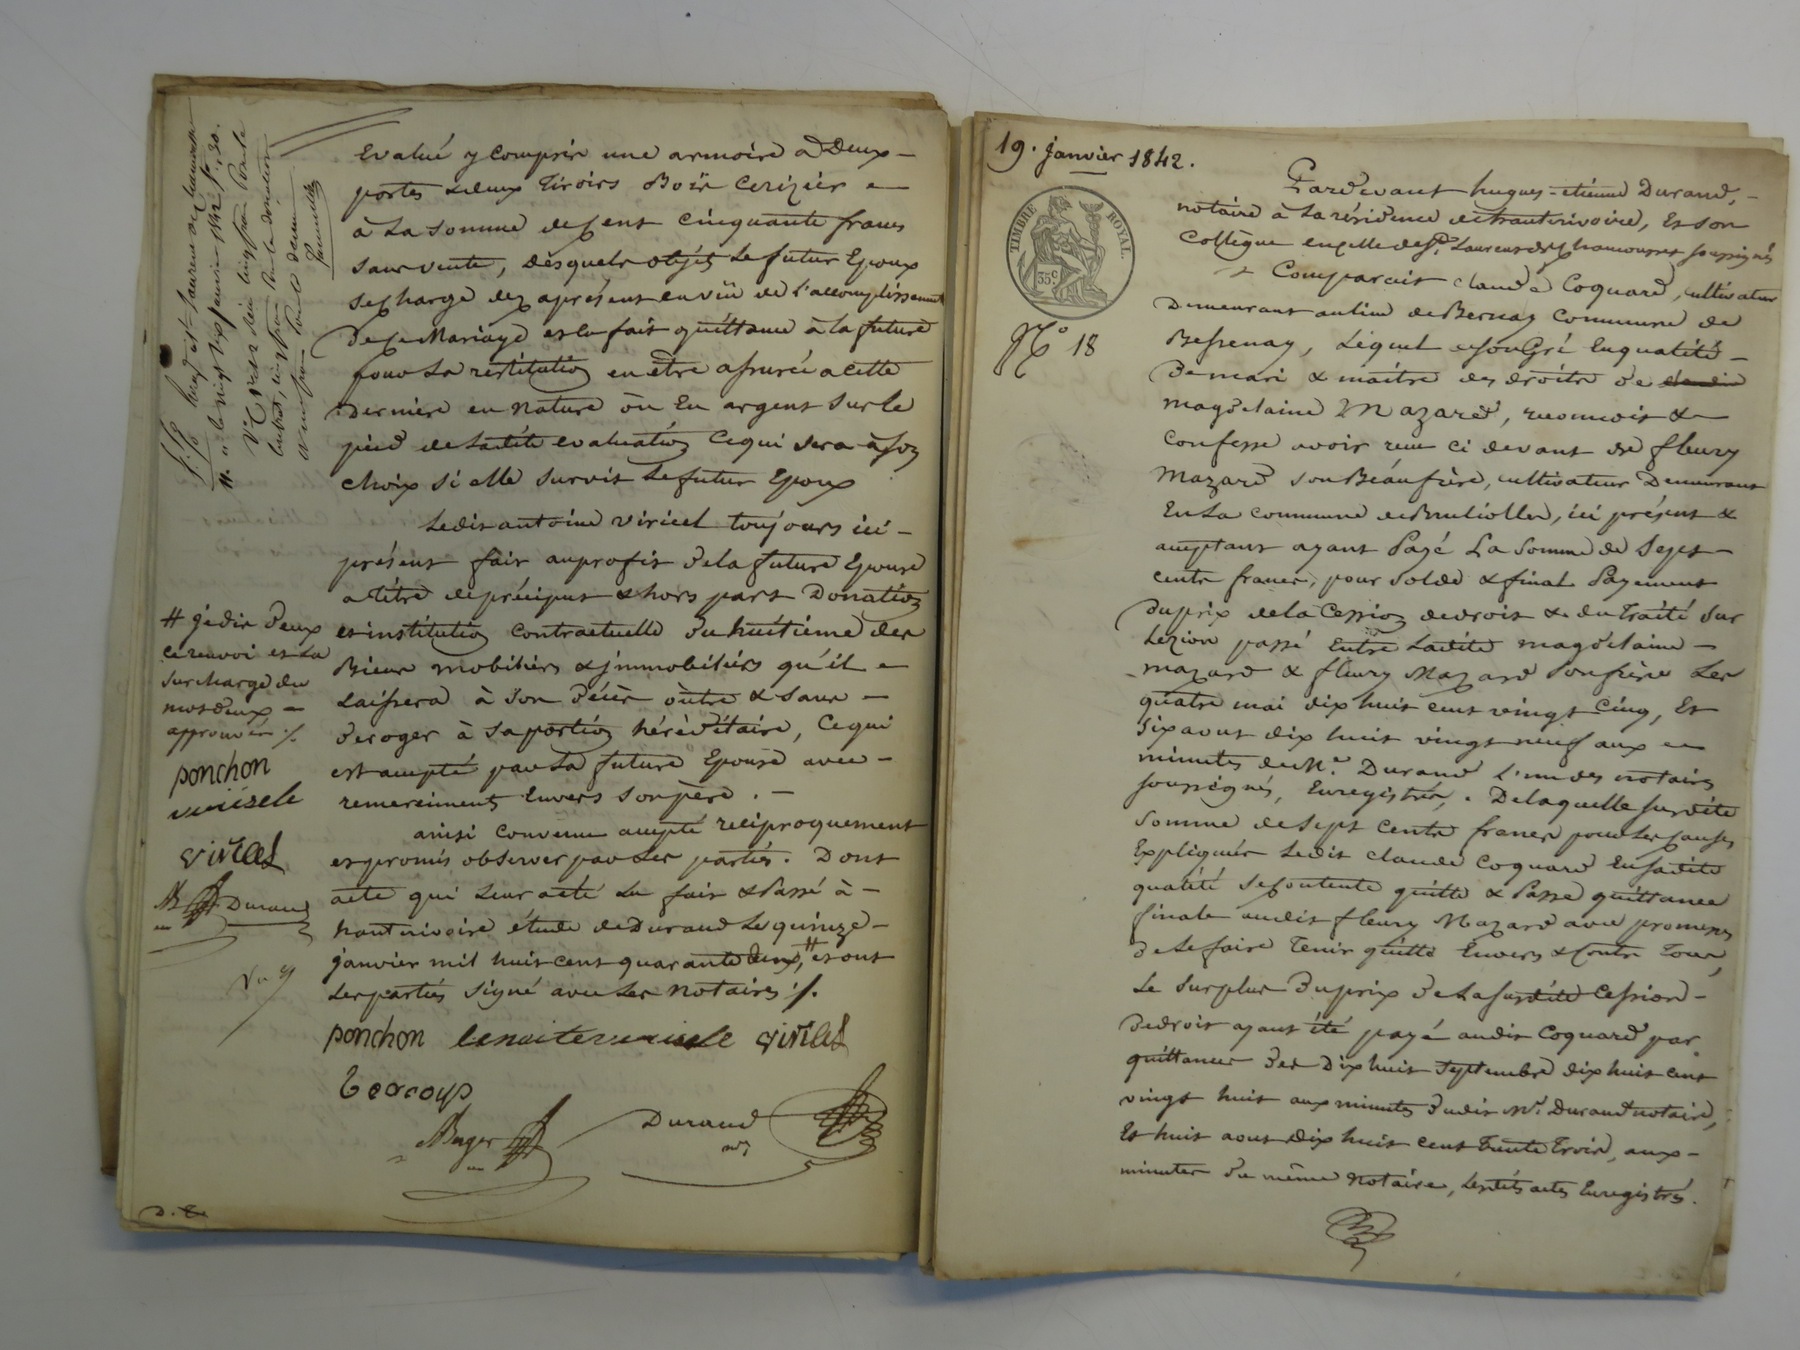 Evalué y compris une armoire a Deux
portes & deux Tiroirs Bois Cerizier
à La somme de Cent Cinquante francs
sans vente, desquels objets Le futur Epoux
se charge dez aprésent en vüe de l'accomplissement
de ce Mariage et en fait quittance à la future
pour La restitution en être assurée a cette
Dernière en nature ou En argent sur le
pied de Ladite evaluation Ce qui sera à son
choix si elle survit Le futur Epoux
Ledit antoine viricel toujours ici
présent fait au profit de la future Epouse
a titre de préciput & hors part Donation
et institution Contractuelle du huitième des
Biens mobiliers & jmmobiliers qu'il
Laissera à son décès outre & sans
deroger à sa portion héréditaire, Ce qui
est accepté par La future Epouse avec
remerciments Envers son père.
ainsi convenu accepté reciproquement
et promis observer par Les parties. Dont
acte qui Leur a été Lu fait & Passé à
hauterivoire étude de Durand Le quinze
janvier mil huit cent quarante deux, # et ont
Les parties signé avec Les notaires ./.
ponchon viricel
Durand
# je dis deux
ce renvoi et La
surcharge du
mot deux
approuvés ./.
ponchon
viricel
Durand
19. janvier 1842.
TIMBRE ROYAL.
35 c.
N° 18
Pardevant hugues-etienne Durand,
notaire à La résidence de hauterivoire, Et son
Collègue en celle de St. Laurent de Chamousset soussignés
Comparait claude Coquard, cultivateur
Demeurant au lieu de Bernay Commune de
Bessenay, Lequel de son Gré En qualité
De mari & maitre des droits de
magdelaine Mazard, reconnoit &
Confesse avoir reçu ci devant de fleury
Mazard son Beaufrère, cultivateur Demeurant
En La commune de Brullioles, ici présent &
acceptant ayant Payé La Somme de Sept
cents francs, pour solde & final Payement
Du prix de la Cession de droit & du Traité sur
Lezion passé Entre Ladite magdelaine
mazard & fleury Mazard son frère Les
quatre mai dix huit cent vingt cinq, Et
six aout dix huit vingt neuf aux
minutes de Me. Durand L'un des notaires
soussignés, Enregistrés. De laquelle susdite
Somme de sept Cents francs pour Les causes
Expliquées Ledit claude Coquard En sadite
qualité se Contente quitte & Passe quittance
finale audit fleury Mazard avec promesse
de Le faire Tenir quitte Envers & Contre Tous,
Le Surplus Du prix de La susdite Cession
de droit ayant été payé audit Coquard par
quittances des Dix huit Septembre dix huit cent
vingt huit aux minutes dudit Me. Durand notaire,
Et huit aout dix huit cent Trente Trois, aux
minutes du même notaire, Lesdits actes Enregistrés.